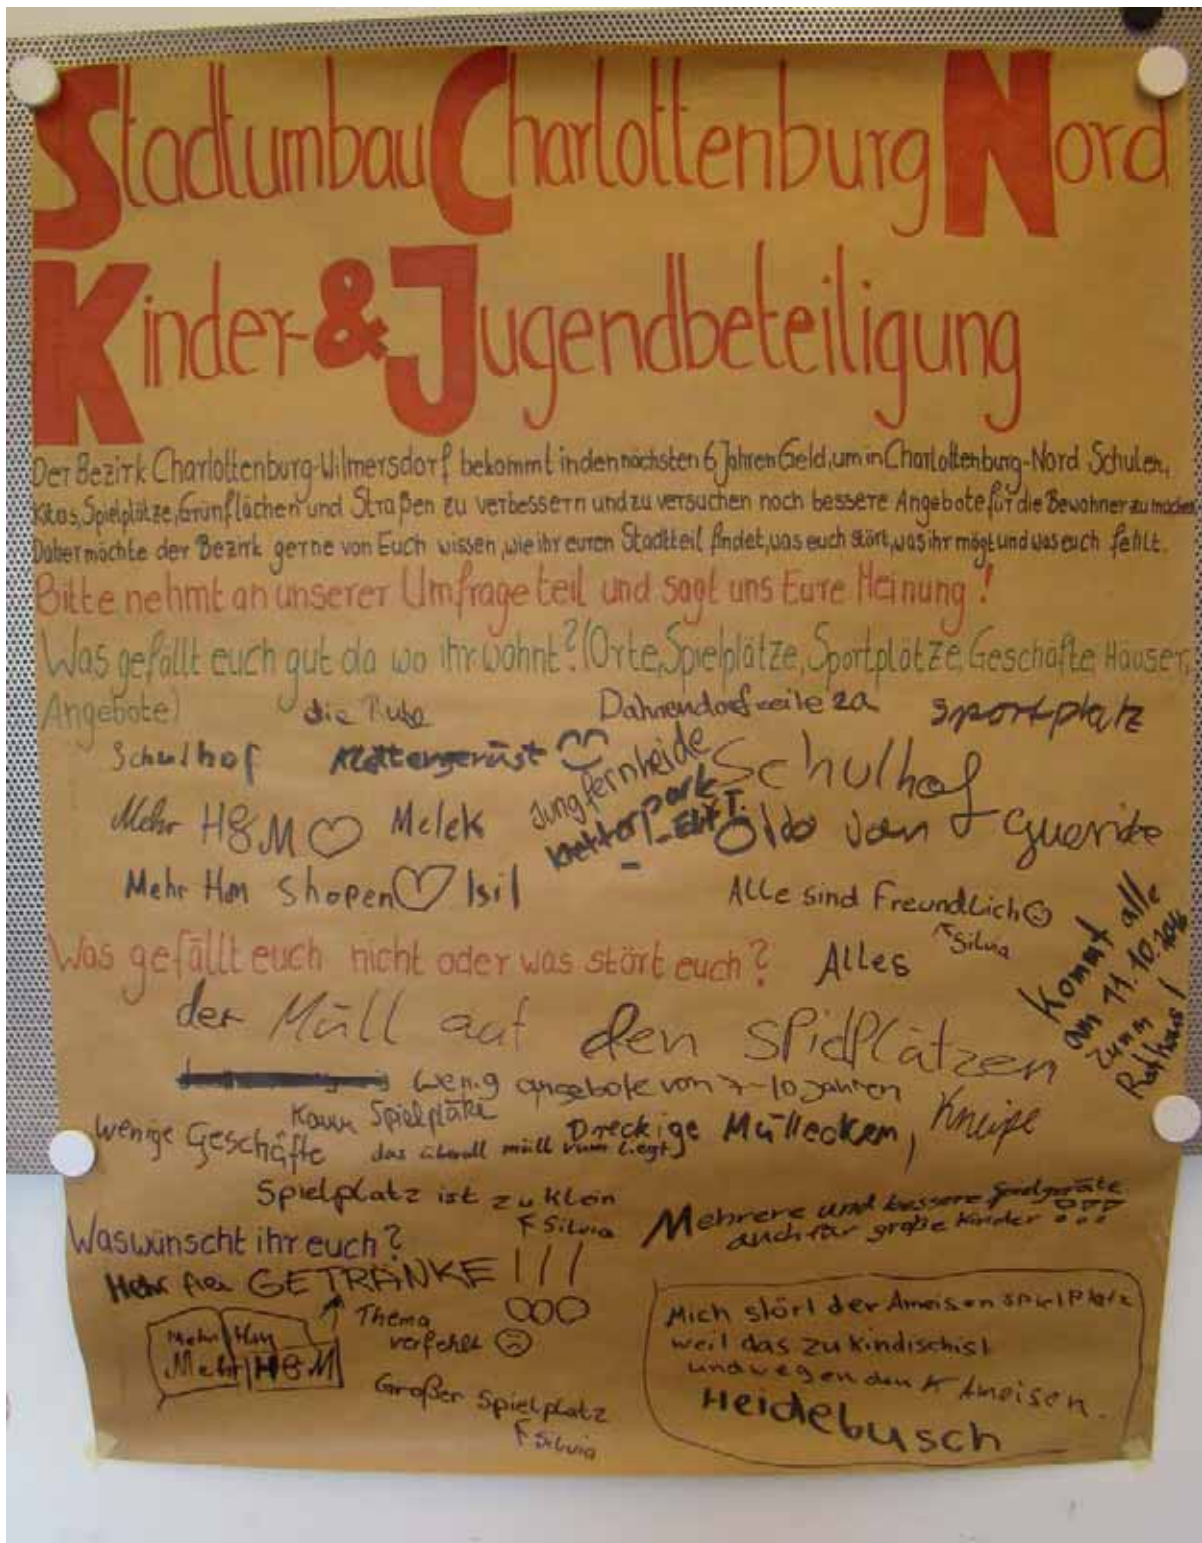 Stadtumbau Charlottenburg Nord
Kinder- & Jugendbeteiligung
Der Bezirk Charlottenburg-Wilmersdorf bekommt in den nächsten 6 Jahren Geld, um in Charlottenburg-Nord Schulen,
Kitas, Spielplätze, Grünflächen und Straßen zu verbessern und zu versuchen noch bessere Angebote für die Bewohner zu machen.
Daher möchte der Bezirk gerne von Euch wissen, wie ihr euren Stadtteil findet, was euch stört, was ihr mögt und was euch fehlt.
Bitte nehmt an unserer Umfrage teil und sagt uns Eure Meinung!
Was gefällt euch gut da wo ihr wohnt? (Orte, Spielplätze, Sportplätze, Geschäfte, Häuser,
Angebote)
die Ruhe
Dahrendorfzeile 2a
Sportplatz
Schulhof
Klettergerüst
Jungfernheide
Kletterpark
Schulhof
Mehr H&M ♡ Melek
Otto von Guericke
Mehr Hm Shopen ♡ Isil
Alle sind Freundlich ☺
Silvia
Kommt alle
am 11.10.2016
zum
Rathaus!
Was gefällt euch nicht oder was stört euch?
Alles
der Müll auf den Spidplätzen
wenig angebote von 7-10 Jahren
Kaum Spielplätze
wenige Geschäfte
das überall müll rum liegt
Dreckige Müllecken, Kneipe
Spielplatz ist zu klein
Silvia
Mehrere und bessere Spielgeräte
auch für große Kinder !!!
Was wünscht ihr euch?
Mehr GETRÄNKE !!!
Thema
verfehlt ☹
Mehr Hm
Mehr H&M
Großer Spielplatz
Silvia
Mich stört der Ameisen Spielplatz
weil das zu kindisch ist
und wegen den Ameisen.
Heidebusch